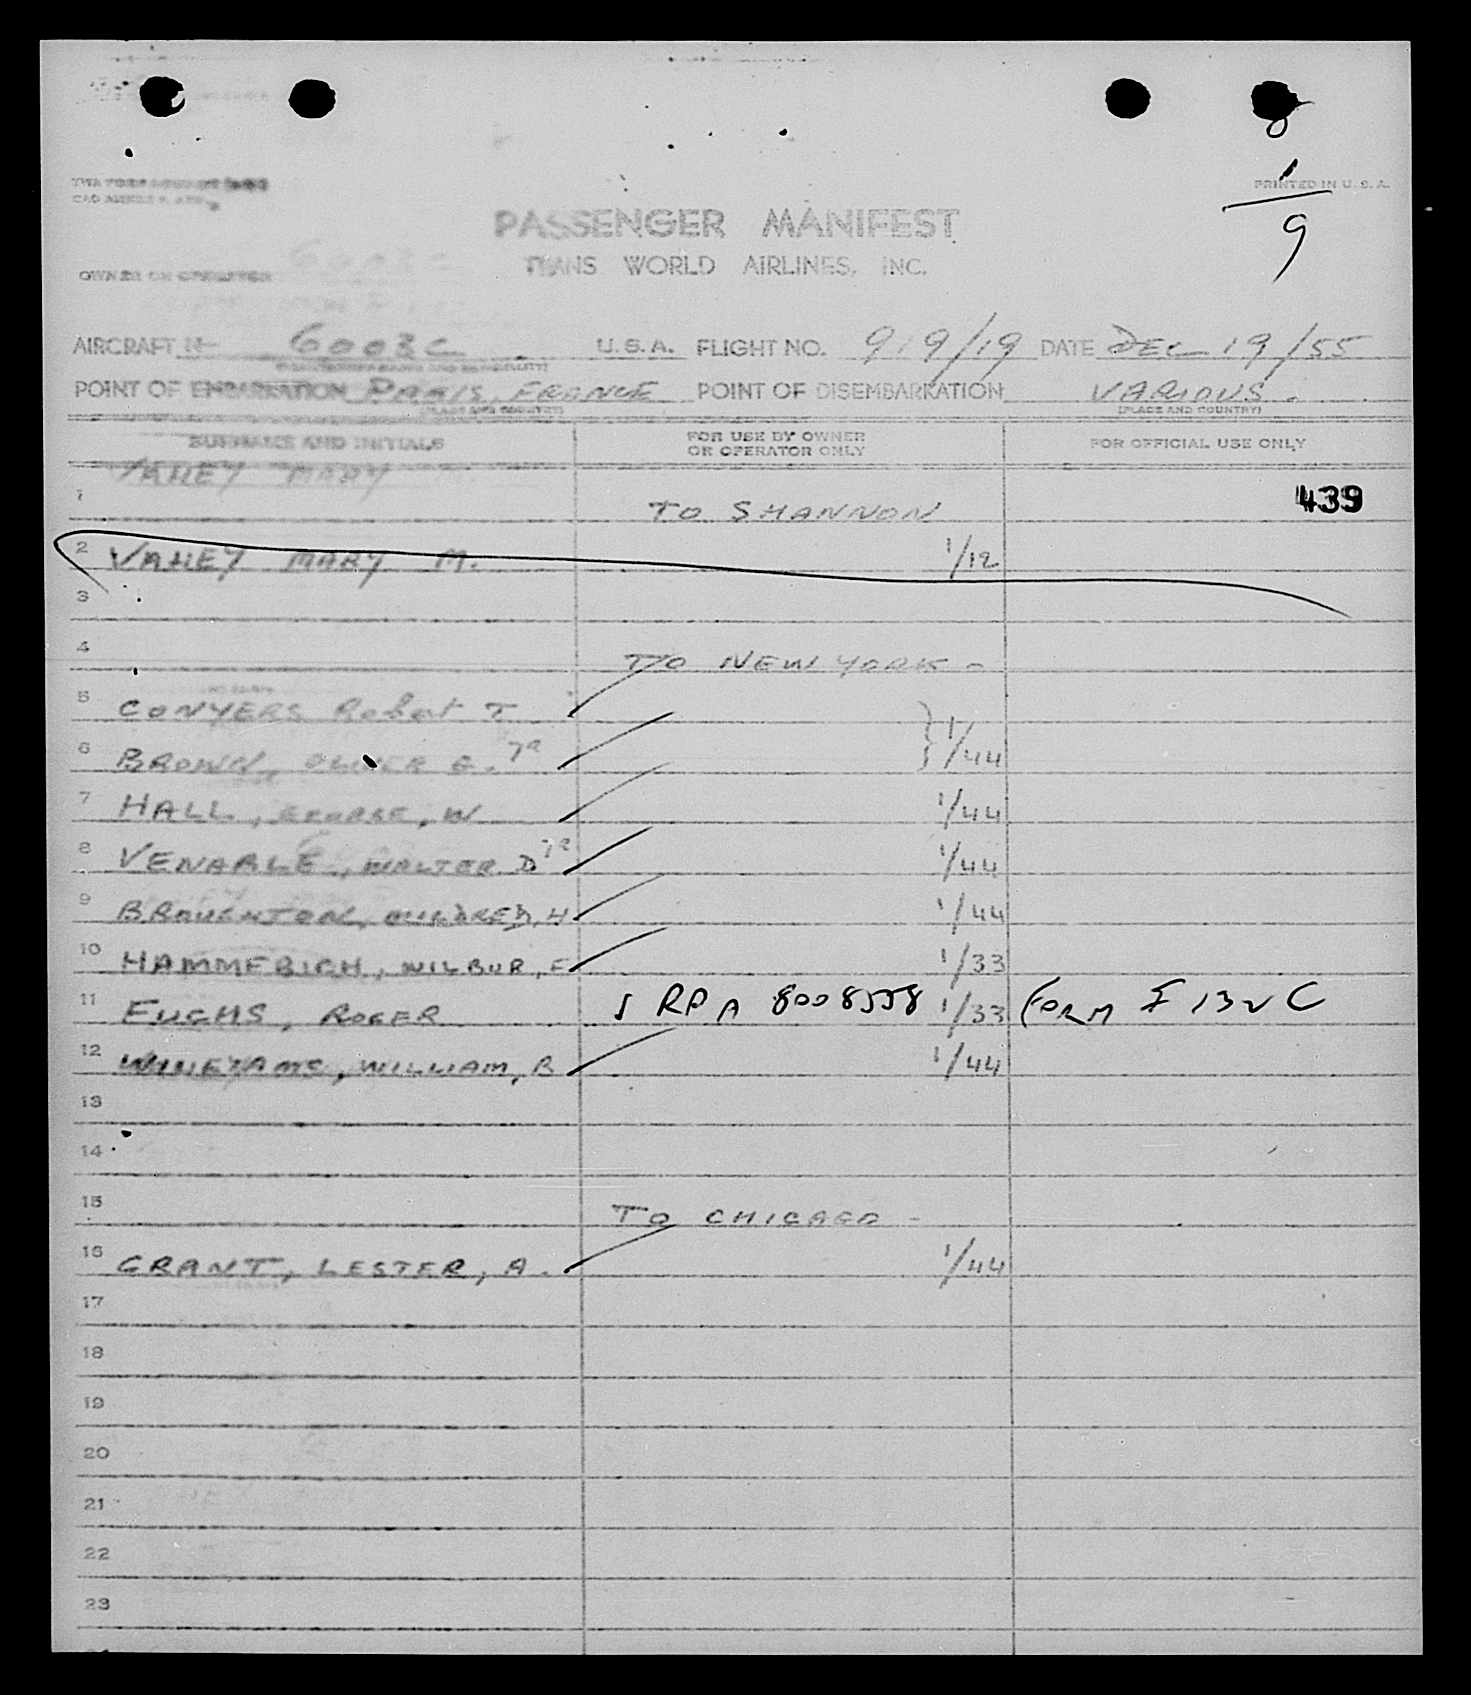 8
1
PRINTED IN U. S. A.
9
PASSENGER MANIFEST
TRANS WORLD AIRLINES, INC.
OWNER OR OPERATOR
AIRCRAFT N 6003C U.S.A. FLIGHT NO. 919/19 DATE DEC 19/55
POINT OF EMBARKATION PARIS, FRANCE POINT OF DISEMBARKATION VARIOUS.
(PLACE AND COUNTRY) (PLACE AND COUNTRY)
SURNAME AND INITIALS FOR USE BY OWNER OR OPERATOR ONLY FOR OFFICIAL USE ONLY
VAHEY MARY M.
1 TO SHANNON 439
2 VAHEY MARY M. 1/12
3
4 TO NEW YORK -
5 CONYERS Robert T
6 BROWN, OLIVER G. JR 1/44
7 HALL, GEORGE, W 1/44
8 VENABLE, WALTER D JR 1/44
9 BROUGHTON, MILDRED, H 1/44
10 HAMMERICH, WILBUR, F 1/33
11 FUCHS, ROGER RPA 8008558 1/33 FORM I 132 C
12 WILLIAM, B 1/44
13
14
15 TO CHICAGO -
16 GRANT, LESTER, A. 1/44
17
18
19
20
21
22
23